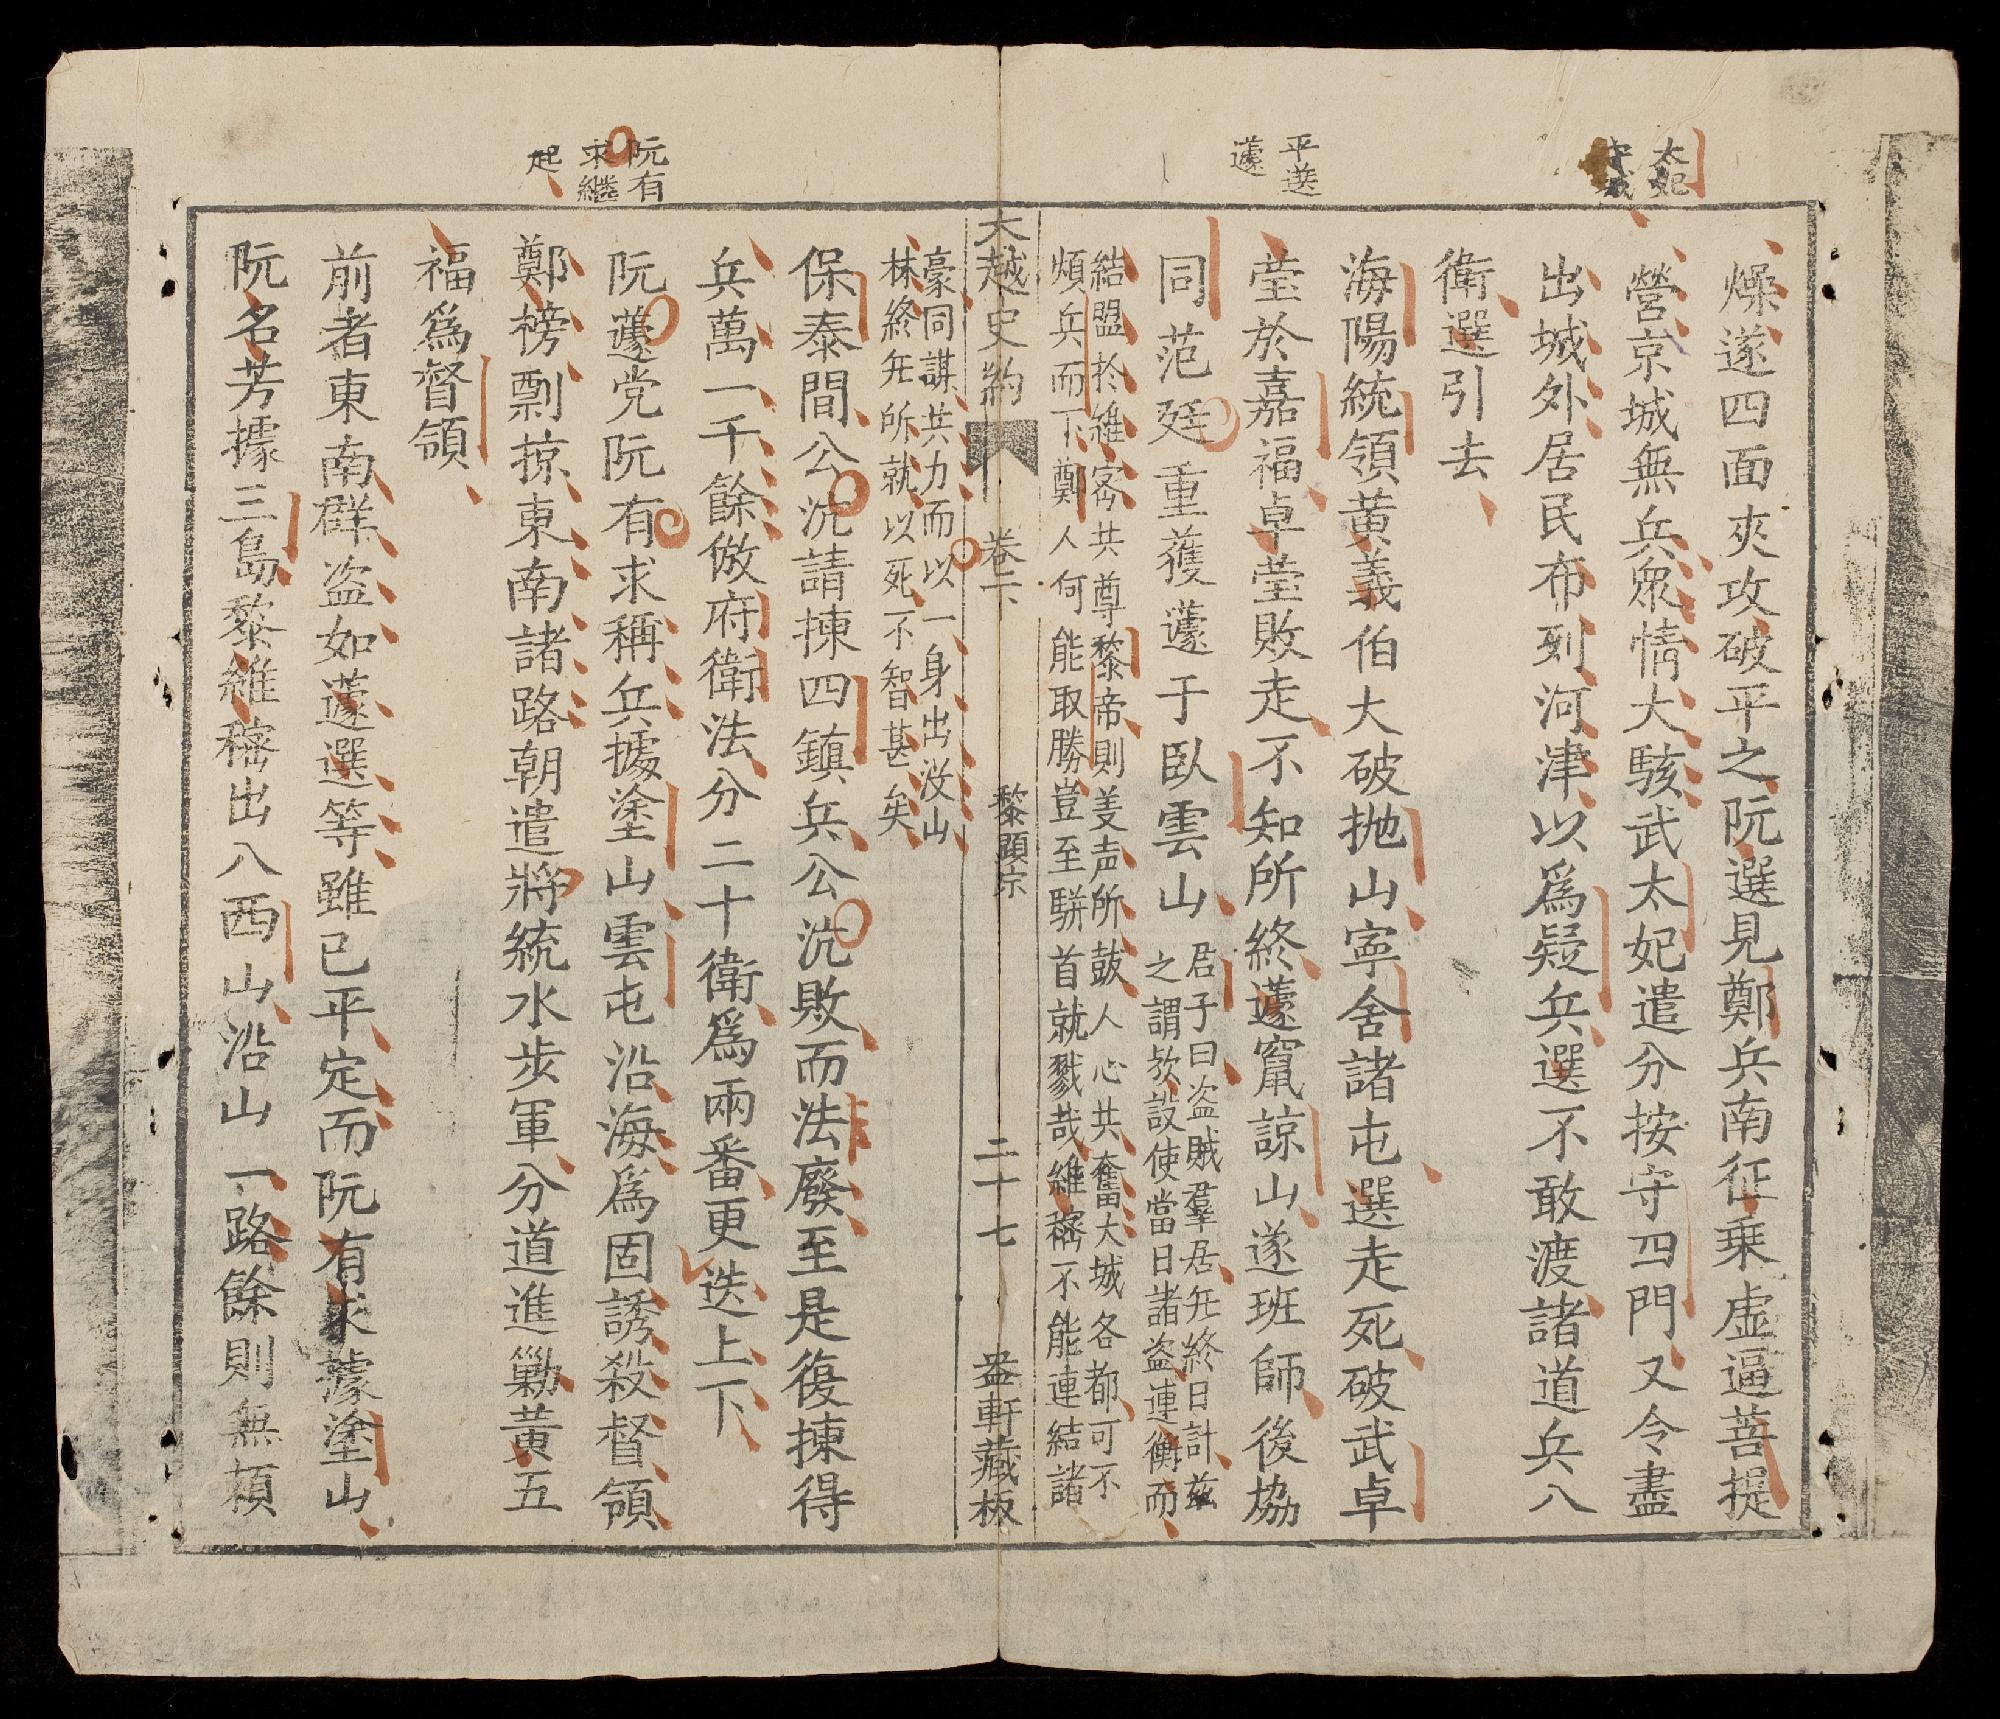 太妃
守城
平選
蘧
燥遂四面夾攻破平之阮選見鄭兵南征乗虛逼菩提
營京城無兵衆情大駭武太妃遣分按守四門又令盡
出城外居民布列河津以爲疑兵選不敢渡諸道兵八
衛選引去
海陽統領黃義伯大破抛山寧舍諸屯選走死破武卓
瑩於嘉福卓瑩敗走不知所終蘧竄諒山遂班師後協
同范廷重獲蘧于臥雲山
君子曰盗賊羣居无終日計兹
之謂欤設使當日諸盗連衡而
結盟扵維𥡴共尊黎帝則羙声所鼓人心共奮大城各都可不
煩兵而下鄭人何能取勝豈至駢首就戮哉維𥡴不能連結諸
大越史約 卷二 黎顯宗 二十七 盎軒藏板
豪同謀共力而以一身出没山
林終无所就以死不智甚矣
保泰間公沆請揀四鎮兵公沆敗而法廢至是復揀得
兵萬一千餘倣府衛法分二十衛爲兩番更迭上下
阮有
求繼
起
阮蘧党阮有求稱兵據塗山雲屯沿海爲固誘殺督領
鄭榜剽掠東南諸路朝遣將統水步軍分道進勦黃五
福爲督領
前者東南群盗如蘧選等雖已平定而阮有求據塗山
阮名芳據三島黎維𥡴出八西山沿山一路餘則無頼